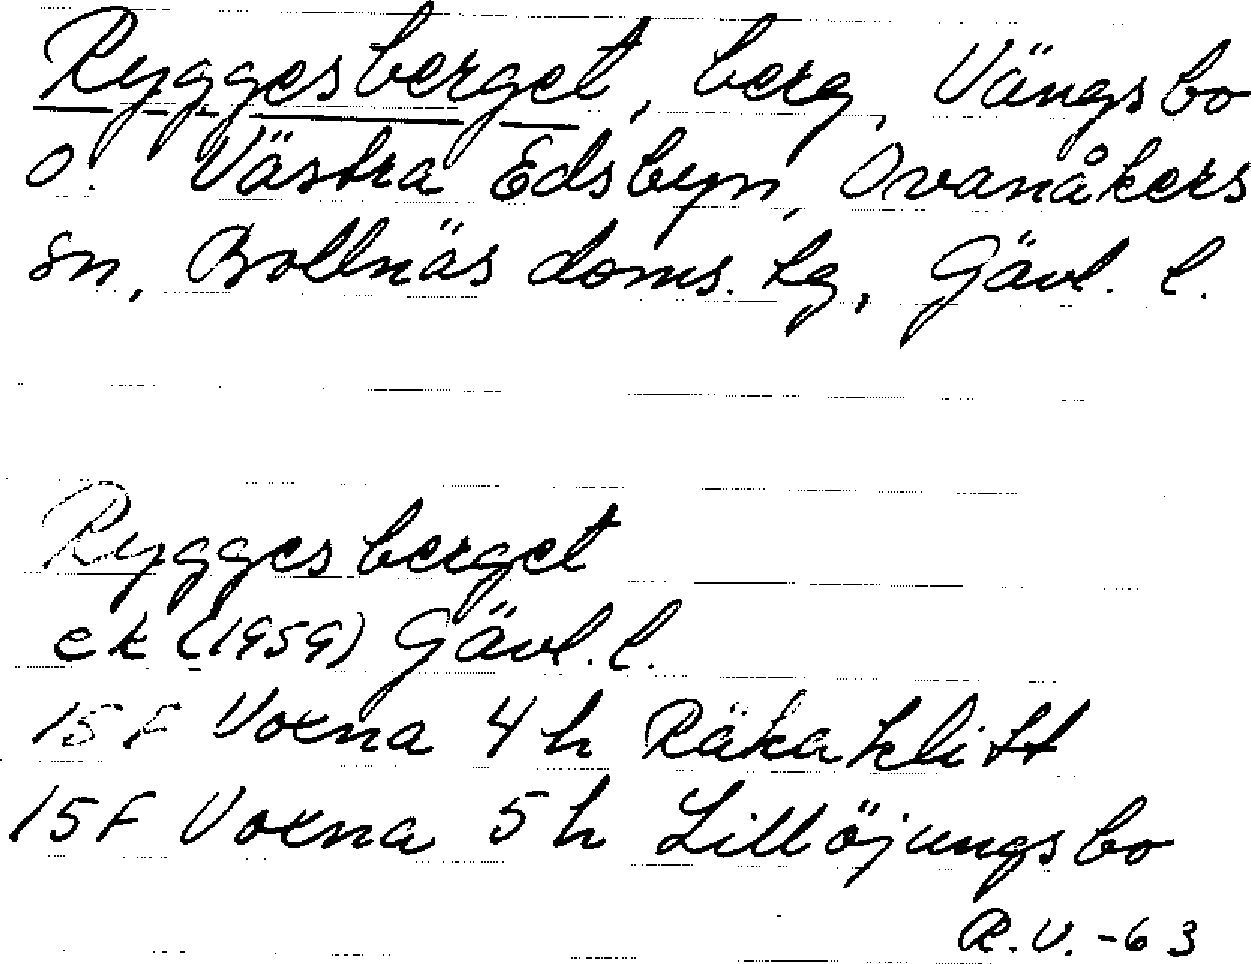 Ryggesberget, berg, Vängsbo
o. Västra Edsbyn, Ovanåkers
sn, Bollnäs doms. tg, Gävl. l.
Ryggesberget
ek (1959) Gävl. l.
15F Voxna 4h Räkaklitt
15F Voxna 5h Lillöjungsbo
R.V. -63